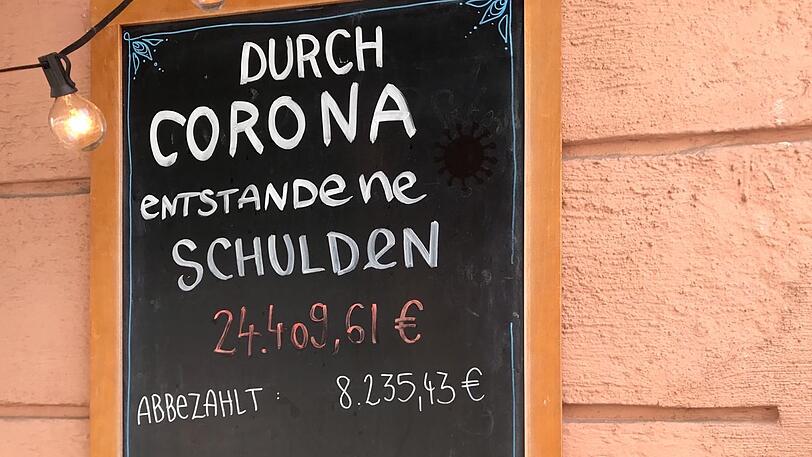 DURCH
CORONA
entstandene
SCHULDEN
24.409,61 €
ABBEZAHLT : 8.235,43 €